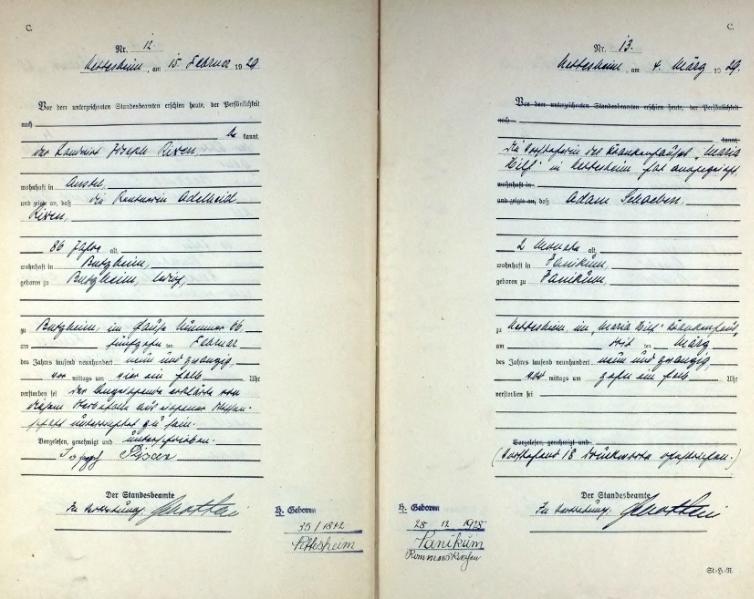 C.
Nr. 12.
Nettesheim, am 15. Februar 1929
Vor dem unterzeichneten Standesbeamten erschien heute, der Persönlichkeit
nach
be kannt,
der Landwirt Joseph Riren,
wohnhaft in Anstel,
und zeigte an, daß die Rentnerin Adelheid
Riren,
86 Jahre alt,
wohnhaft in Butzheim,
geboren zu Butzheim, ledig,
zu Butzheim, im Hause Nummer 86,
am fünfzehnten Februar
des Jahres tausend neunhundert neun und zwanzig,
vor mittags um vier ein halb Uhr
verstorben sei. Der Anzeigende erklärte von
diesem Sterbefalle aus eigener Wissen-
schaft unterrichtet zu sein.
Vorgelesen, genehmigt und unterschrieben.
Joseph
Der Standesbeamte
In Vertretung:
H. Geboren
35/1842
Nettesheim
C.
Nr. 13.
Nettesheim, am 4. März 1929.
Vor dem unterzeichneten Standesbeamten erschien heute, der Persönlichkeit
nach
kannt,
Die Vorsteherin des Krankenhauses "Maria
Hilf" in Nettesheim hat angezeigt,
wohnhaft in
und zeigte an, daß Adam Schaeben,
2 Monate alt,
wohnhaft in Vanikum,
geboren zu Vanikum,
zu Nettesheim im "Maria Hilf" Krankenhaus,
am März
des Jahres tausend neunhundert neun und zwanzig,
vor mittags um zehn ein halb Uhr
verstorben sei
Vorgelesen, genehmigt und
(Vorstehend 18 Druckworte gestrichen.)
Der Standesbeamte
In Vertretung:
H. Geboren
28 12 1928
Vanikum
Rommerskirchen
St.-H.-R.